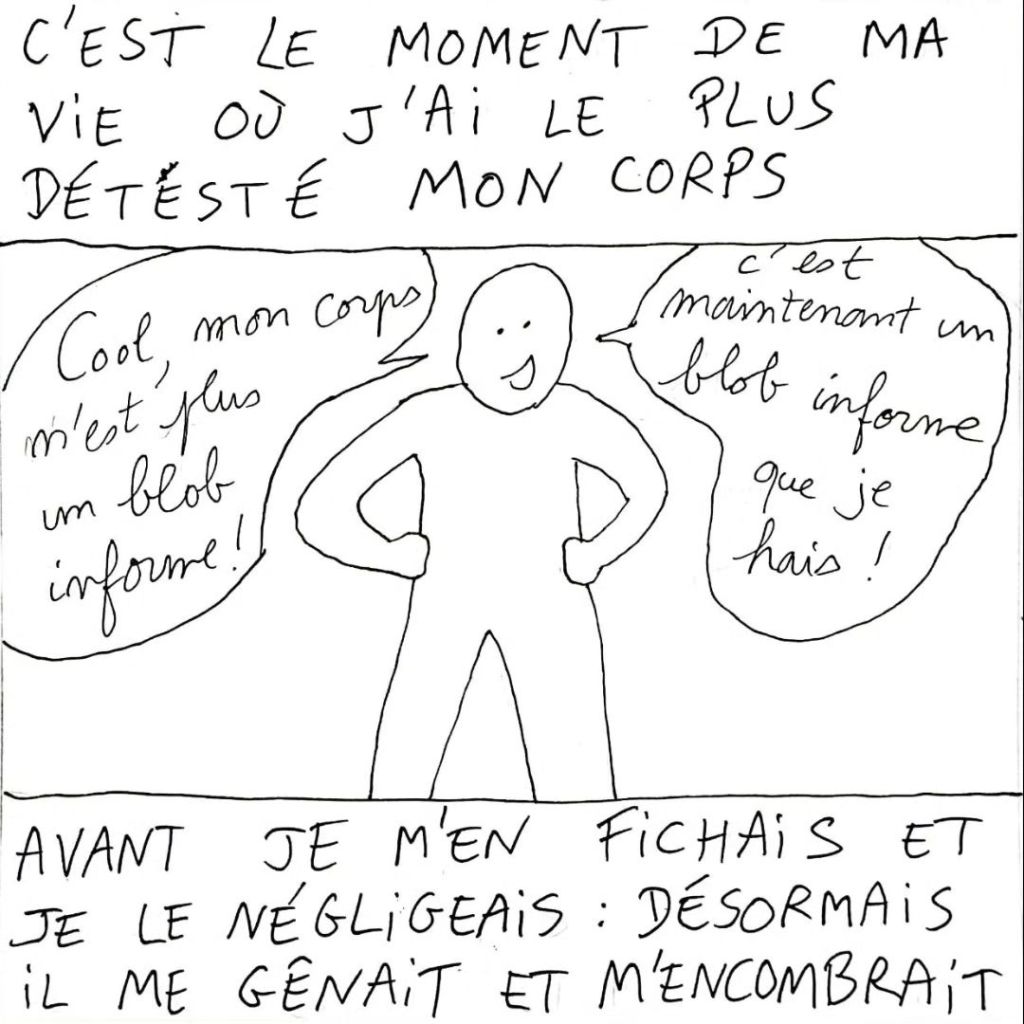 C'EST LE MOMENT DE MA
VIE OÙ J'AI LE PLUS
DÉTESTÉ MON CORPS
Cool, mon corps
n'est plus
un blob
informe!
c'est
maintenant un
blob informe
que je
hais!
AVANT JE M'EN FICHAIS ET
JE LE NÉGLIGEAIS : DÉSORMAIS
IL ME GÊNAIT ET M'ENCOMBRAIT